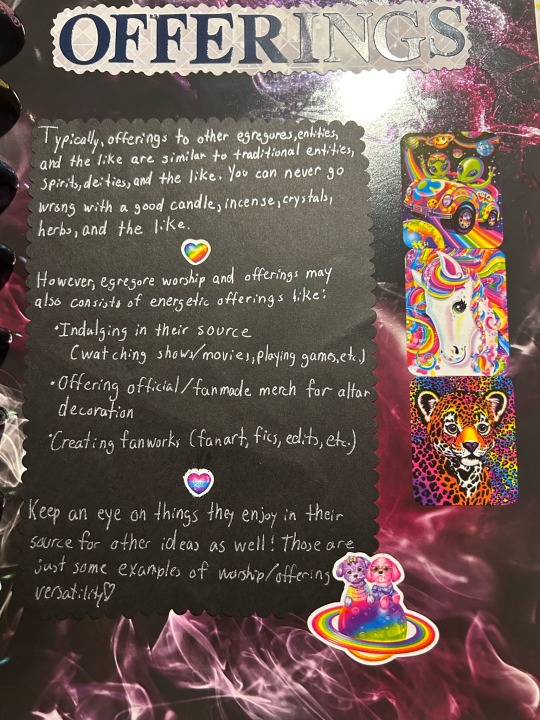 OFFERINGS
Typically, offerings to other egregores, entities,
and the like are similar to traditional entities,
spirits, deities, and the like. You can never go
wrong with a good candle, incense, crystals,
herbs, and the like.
However, egregore worship and offerings may
also consists of energetic offerings like:
•Indulging in their source
(watching shows/movies, playing games, etc.)
•Offering official/fanmade merch for altar
decoration
•Creating fanworks (fanart, fics, edits, etc.)
Keep an eye on things they enjoy in their
source for other ideas as well! Those are
just some examples of worship/offering
versatility♡